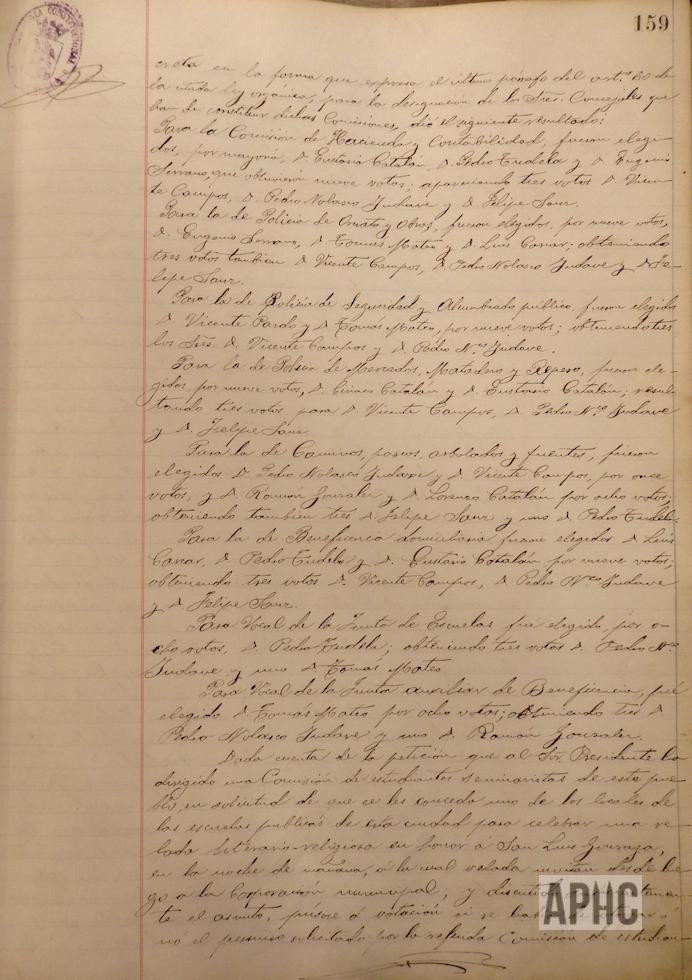 159
creta en la forma que expresa el último párrafo del art.º 60 de
la citada ley orgánica, para la designación de los Sres. Concejales que
han de constituir dichas Comisiones, dió el siguiente resultado:
Para la Comisión de Hacienda y Contabilidad, fueron elegi-
dos, por mayoría, D. Eustasio Catalán, D. Pedro Tudela y D. Eugenio
Serrano, que obtuvieron nueve votos; apareciendo tres votos D. Vicen-
te Campos, D. Pedro Nolasco Judave y D. Felipe Sanz.
Para la de Policía de Ornato y Obras, fueron elegidos, por nueve votos,
D. Eugenio Serrano, D. Tomás Mateo y D. Luis Carnar; obteniendo
tres votos tambien D. Vicente Campos, D. Pedro Nolasco Judave y D. Fe-
lipe Sanz.
Para la de Policía de Seguridad y Alumbrado público, fueron elegidos
D. Vicente Pardo y D. Tomás Mateo, por nueve votos; obteniendo tres
los Sres. D. Vicente Campos y D. Pedro N.co Judave.
Para la de Policía de Mercados, Matadero y Repeso, fueron ele-
gidos, por nueve votos, D. Catalán y D. Eustasio Catalán; resul-
tando tres votos para D. Vicente Campos, D. Pedro N.co Judave
y D. Felipe Sanz.
Para la de Caminos, paseos, arbolados y fuentes, fueron
elegidos D. Pedro Nolasco Judave y D. Vicente Campos, por once
votos, y D. Ramón Gonzalez y D. Lorenzo Catalán por ocho votos;
obteniendo tambien tres D. Felipe Sanz y uno D. Pedro Tudela.
Para la de Beneficencia domiciliaria fueron elegidos D. Luis
Carnar, D. Pedro Tudela y D. Eustasio Catalán por nueve votos;
obteniendo tres votos D. Vicente Campos, D. Pedro N.co Judave
y D. Felipe Sanz.
Para Vocal de la Junta de Escuelas fué elegido, por o-
cho votos, D. Pedro Tudela; obteniendo tres votos D. Pedro N.co
Judave y uno D. Tomás Mateo
Para Vocal de la Junta auxiliar de Beneficencia, fué
elegido D. Tomás Mateo por ocho votos; obteniendo tres D.
Pedro Nolasco Judave y uno D. Ramón Gonzalez.
Dada cuenta de la petición que al Sr. Presidente ha
dirigido una Comisión de estudiantes seminaristas de este pue-
blo, en solicitud de que se les conceda uno de los locales de
las escuelas públicas de esta ciudad para celebrar una ve-
lada literario-religiosa en honor á San Luis Gonzaga,
en la noche de mañana, á la cual velada invitan desde lue-
go a la Corporación municipal; y discutido
te el asunto, púsose á votación si se á
nó el permiso solicitado por la referida Comisión de estudian-
APHC